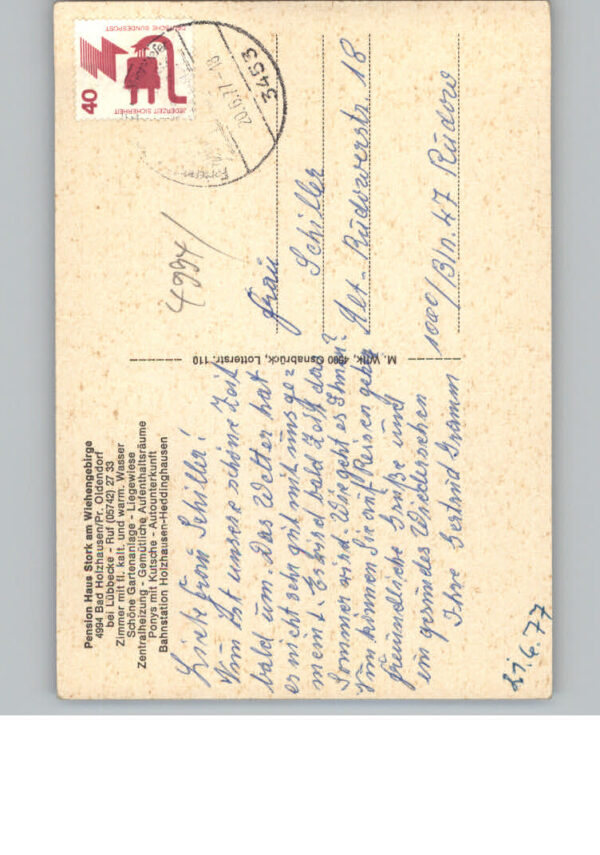 Pension Haus Stork am Wiehengebirge
4994 Bad Holzhausen/Pr. Oldendorf
bei Lübbecke - Ruf (05742) 27 33
Zimmer mit fl. kalt. und warm. Wasser
Schöne Gartenanlage - Liegewiese
Zentralheizung - Gemütliche Aufenthaltsräume
Ponys mit Kutsche - Autounterkunft
Bahnstation Holzhausen-Heddinghausen
Liebe Frau Schiller!
Nun ist unsere schöne Zeit
bald um. Das Wetter hat
es nicht sehr gut mit uns ge=
meint. Es wird bald Zeit das
Sommer wird. Wie geht es Ihnen?
Nun können Sie auf Reisen gehen
freundliche Grüße und
ein gesundes Wiedersehen
Ihre Gertrud Gramm
21.6.77
M. Wilk, 4500 Osnabrück, Lotterstr. 110
4994
DEUTSCHE BUNDESPOST
JEDERZEIT SICHERHEIT
40
3453
20.6.77-18
Frau
Schiller
Alt-Rudowerstr. 18
1000/Bln. 47 Rudow